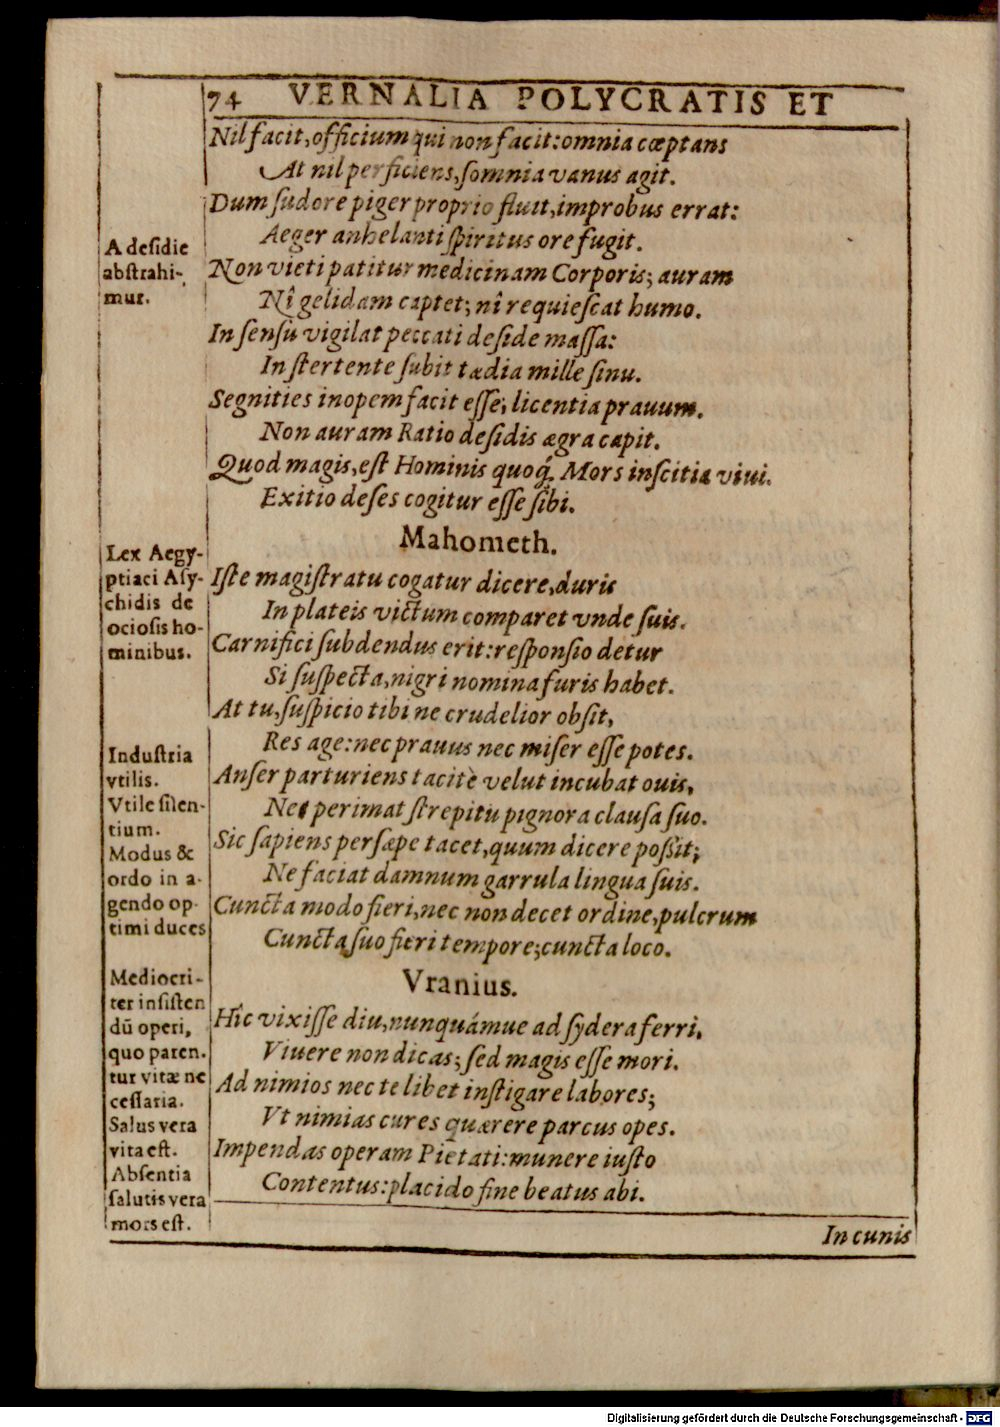 74 VERNALIA POLYCRATIS ET
Nil facit, officium qui non facit: omnia cæptans
At nil perficiens, somnia vanus agit.
Dum sudore piger proprio fluit, improbus errat:
A desidie
abstrahi-
mur.
Aeger anhelanti spiritus ore fugit.
Non vieti patitur medicinam Corporis; auram
Nî gelidam captet; nî requiescat humo.
In sensu vigilat peccati deside massa:
In stertente subit tædia mille sinu.
Segnities inopem facit esse; licentia prauum.
Non auram Ratio desidis ægra capit.
Quod magis, est Hominis quoq́; Mors inscitia viui.
Exitio deses cogitur esse sibi.
Mahometh.
Lex Aegy-
ptiaci Asy-
chidis de
ociosis ho-
minibus.
Iste magistratu cogatur dicere, duris
In plateis victum comparet vnde suis.
Carnifici subdendus erit: responsio detur
Si suspecta, nigri nomina furis habet.
At tu, suspicio tibi ne crudelior obsit,
Res age: nec prauus nec miser esse potes.
Industria
vtilis.
Vtile silen-
tium.
Modus &
ordo in a-
gendo op-
timi duces
Anser parturiens tacitè velut incubat ouis,
Ne perimat strepitu pignora clausa suo.
Sic sapiens persæpe tacet, quum dicere possit;
Ne faciat damnum garrula lingua suis.
Cuncta modo fieri, nec non decet ordine, pulcrum
Cuncta suo fieri tempore; cuncta loco.
Vranius.
Mediocri-
ter insisten
dū operi,
quo paren-
tur vitæ ne
cessaria.
Salus vera
vita est.
Absentia
salutis vera
mors est.
Hîc vixisse diu, nunquámue ad sydera ferri,
Viuere non dicas; sed magis esse mori.
Ad nimios nec te libet instigare labores;
Vt nimias cures quærere parcus opes.
Impendas operam Pietati: munere iusto
Contentus: placido fine beatus abi.
In cunis
Digitalisierung gefördert durch die Deutsche Forschungsgemeinschaft - DFG